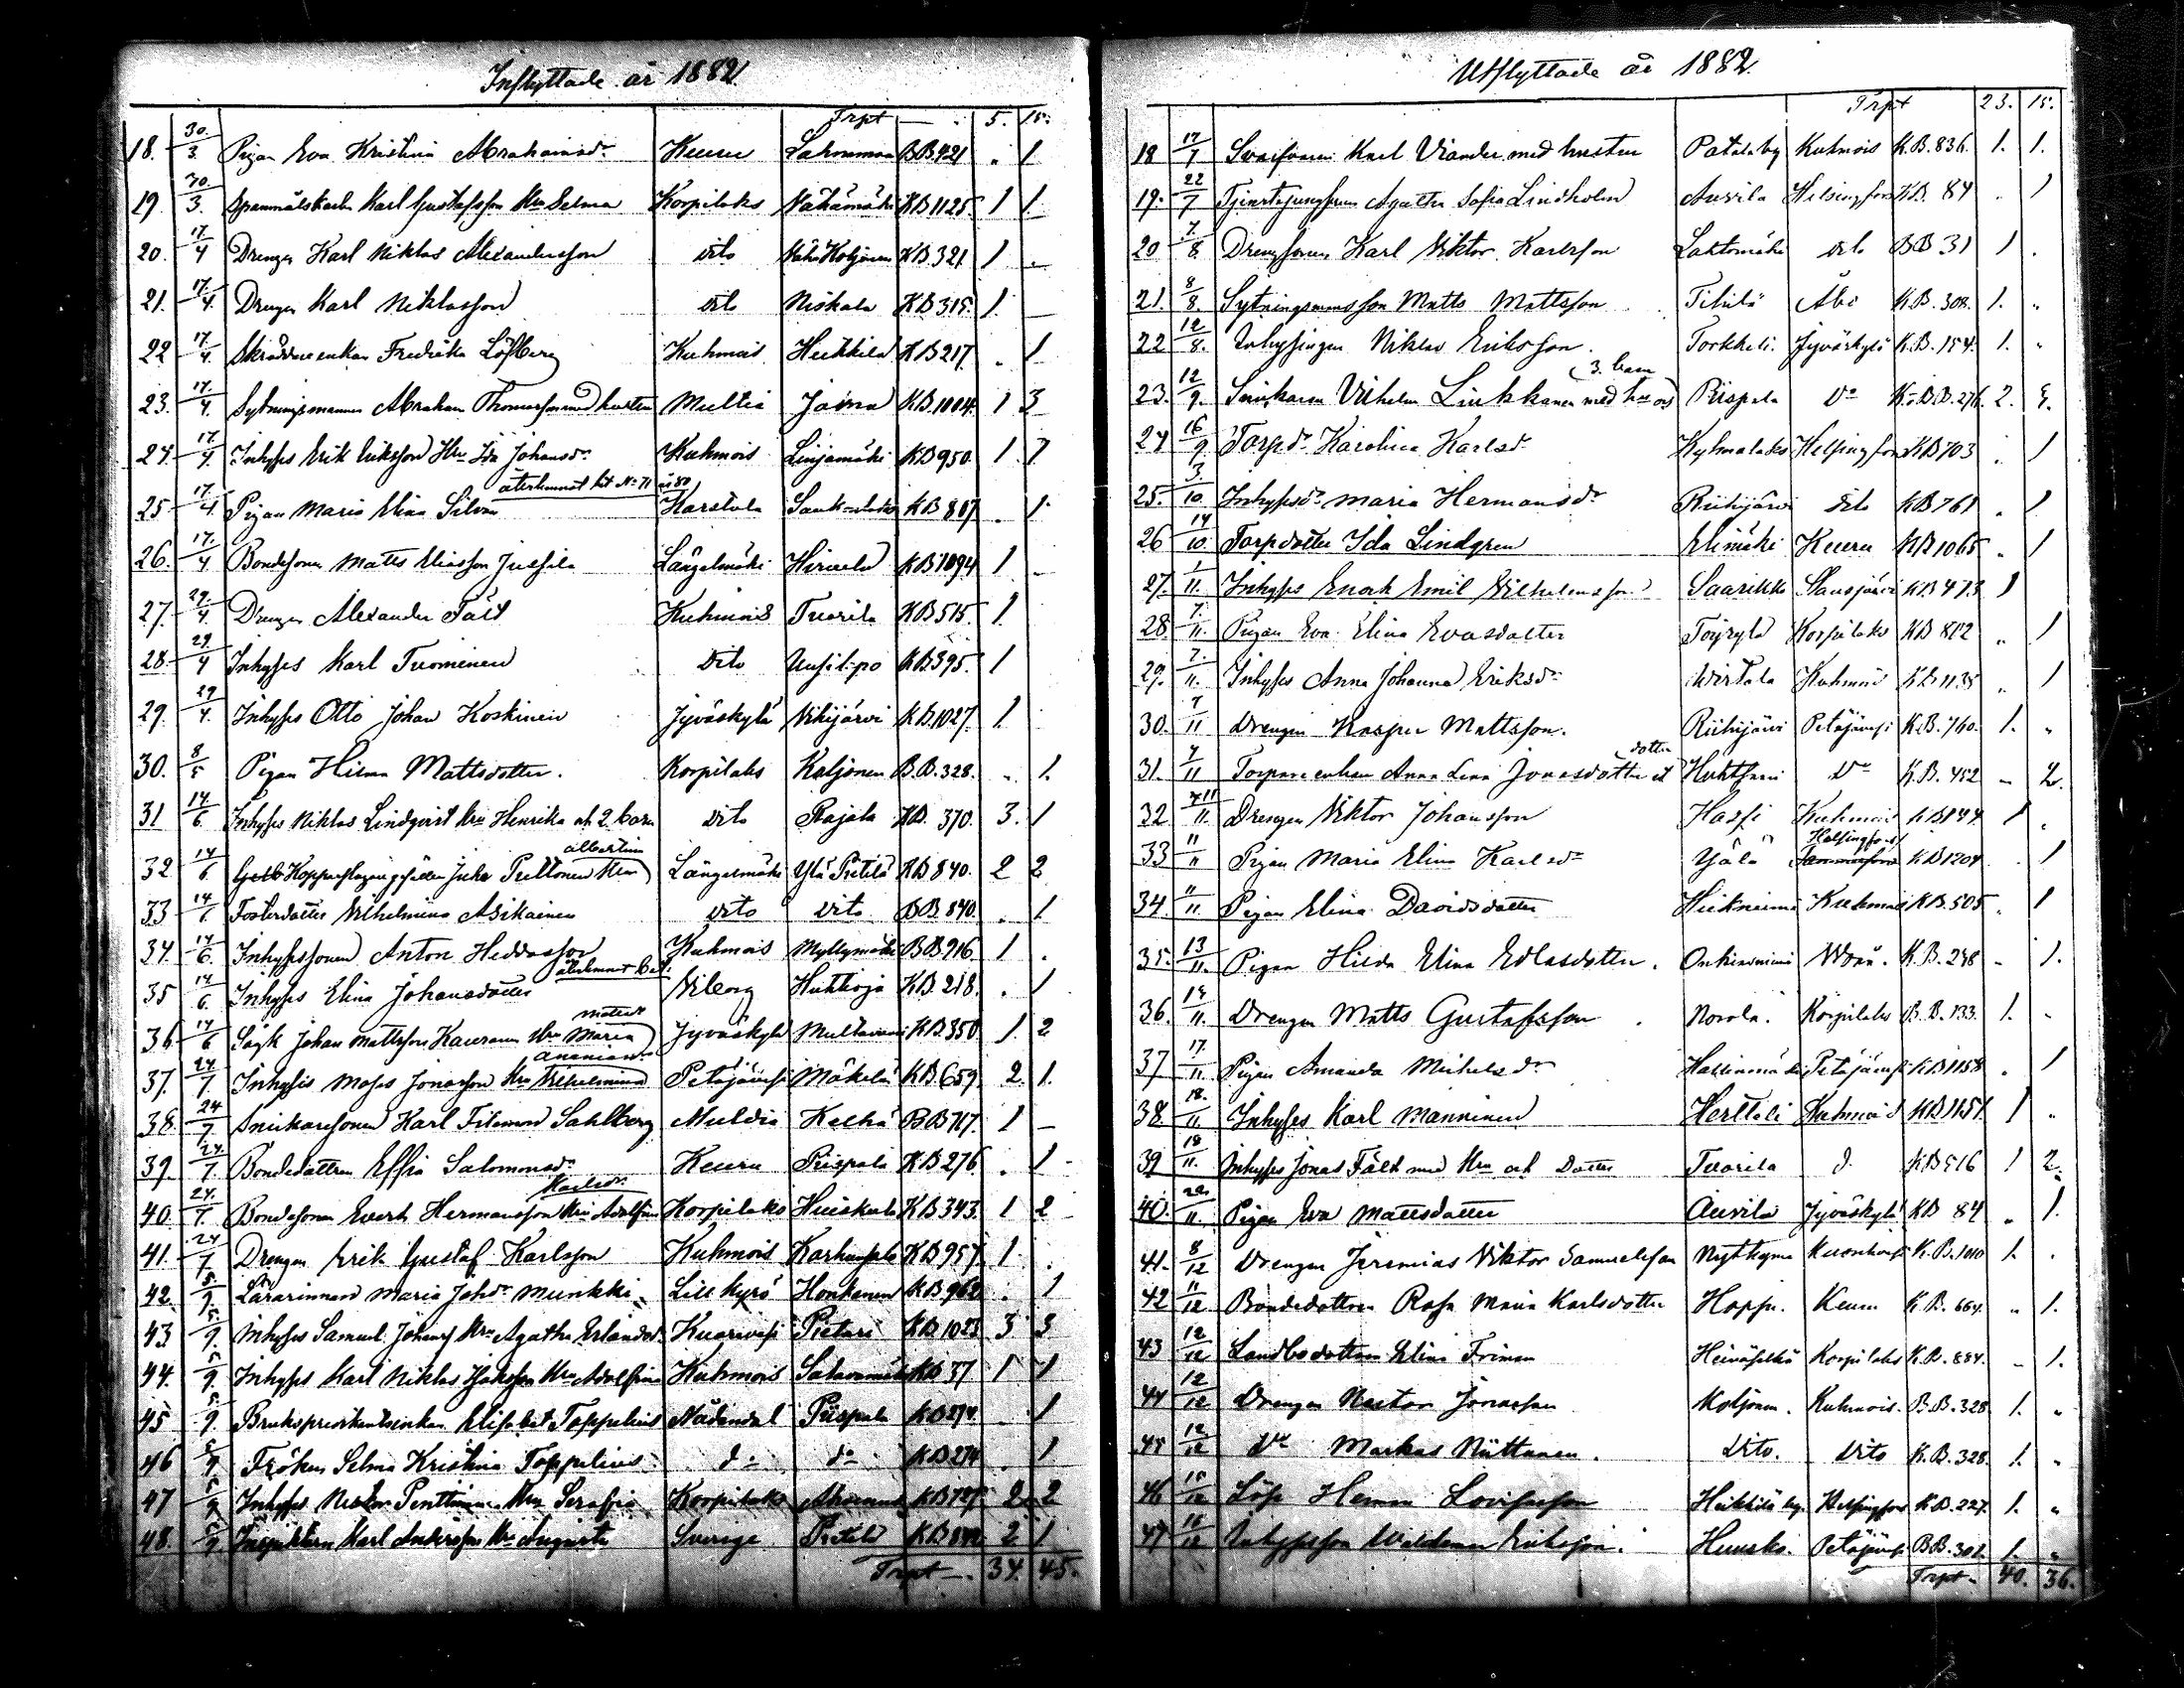 Inflyttade år 1882.
Trpt — 5. 15.
18. 30/3. Pigan Eva Kristina Abrahamsdr Keuru BB 421 „ 1
19. 30/3. Spannmålskarln Karl Gustafsson Hru Selma Korpilaks KB 1125. 1 1
20. 17/4 Drengen Karl Niklas Alexandersson dito KB 321 1 -
21. 17/4. Drengen Karl Niklasson dito Niskala KB 315. 1. —
22 17/4. Skräddareenkan Fredrika Löfberg Kuhmois Heikkilä KB 217. „ 1
23. 17/4. Sytningsmannen Abraham Thomasson med hustru Multia KB. 1004. 1 3
24. 17/4. Inhyses Erik Eriksson Hru Johansdr Kuhmois Linjamäki KB 950. 1. 7
återkommit hit No 71 år 80
25 17/4 Pigan Maria Elina Silvan Karstula KB 807 „ 1.
26. 17/4 Bondesonen Matts Eliasson Jussila Längelmäki Hirvelä KB 1094 1 -
27. 29/4. Drengen Alexander Fält Kuhmois Tuorila KB 515. 1.
28. 29/4 Inhyses Karl Tuominen dito KB 395. 1
29. 29/4. Inhyses Otto Johan Koskinen Jyväskylä KB. 1027. 1.
30. 8/5 Pigan Hilma Mattsdotter. Korpilaks Koljonen B.B. 328. „ 1.
31 14/6. Inhyses Niklas Lindqvist Hru Henrika och 2 barn dito Rajala KB. 370. 3. 1
albertina
32 14/6 Kopparslagaregesällen Juho Peltonen Hru Längelmäki Ylä Pietilä KB 840. 2 2
33 14/6. Fosterdotter Vilhelmina Asikainen dito dito BB. 840. „ 1
34. 14/6. Inhysessonen Anton Heddasson Kuhmois Myllymäki BB 916 1 .
återkommit bet.
35 14/6 Inhyses Elina Johansdotter Viborg Huttioja KB. 218. . 1
mattsdr
36 14/6 Johan Mattsson Hru Maria Jyväskylä KB 350 1. 2
ananiasdr
37. 24/7. Inhyses Moses Jonasson Hru Vilhelmina Petäjävesi Mäkelä KB 659 2. 1.
38. 24/7. Snickaresonen Karl Filemon Sahlberg Multia BB 717. 1 -
39. 24/7. Bondedottren Effia Salomonsdr Keuru Piispala KB 276 . 1
Karlsdr
40. 24/7. Bondesonen Evert Hermansson Hru Adolfina Korpilaks Huiskula KB 343. 1 2
41. 24/7 Drengen Erik Gustaf Karlsson Kuhmois KB 957. 1. .
42. 5/9. Lärarinnan Maria Johdr Munkki Lill kyrö Honkanen KB 962 . 1
43 5/9. Inhyses Samuel Johansson Hru Agatha Erlandsd. Pietari KB 1023 3 3
44. 5/9. Inhyses Karl Niklas Hru Adolfina Kuhmois KB 37 1 1
45 5/9. Elisabet Toppelius Nådendal Piispala KB 274. 1
46 5/9 Fröken Selma Kristina Toppelius do do KB 274 . 1
47 5/9 Inhyses Nestor Penttinen Hru Serafia Korpilaks 2 2
48. 5/9 Inspektorn Karl Andersson Hru Augusta Sverige Pietilä 2 1
Trpt —. 34. 45.
Utflyttade år 1882.
Trpt 23. 15.
18 17/7 Karl Viander med hustru Patalaby Kuhmois K.B. 836. 1. 1.
19. 22/7 Tjenstejungfrun Agatha Sofia Lindholm Auvila Helsingfors KB. 84 . 1
20 7/8 Drengsonen Karl Viktor Karlsson Lahtomäki dito BB 31 1 .
21. 8/8. Sytningsmansson Matts Mattsson Åbo K.B. 308. 1. „
22 12/8. Inhysingen Niklas Eriksson. Torkkeli. Jyväskylä K.B. 154. 1. „
3. barn
23. 12/9. Snickaren Vilhelm Liukkonen med hru och Piispala Do K.o.B.B. 276. 2. 4.
24 16/9 Torpdr Karolina Karlsdr Hyhmalaks Helsingfors KB 703 „ 1
25. 3/10. Inhysdr Maria Hermansdr Riihijärvi dito KB 761 „ 1
26 14/10. Torpdotter Ida Lindgren Elimäki Keuru KB 1065 „ 1
27. 1/11. Inhyses Enok Emil Vilhelmsson Saarikko Hausjärvi KB 473 1
28 7/11. Pigan Eva Elina Evasdotter Töyrylä Korpilaks KB 812 „ 1
29. 7/11. Inhyses Anna Johanna Eriksdr Wirtala Kuhmois KB 1135 „ 1
30. 7/11 Drengen Kasper Mattsson. Riihijärvi Petäjävesi K.B. 760. 1. „
dotter
31. 7/11 Torpareenkan Anna Lena Jonasdotter et Do K.B. 452 - 2.
32 11/11. Drengen Viktor Johansson Hassi Kuhmois KB 144. 1 „
Helsingfors
33 11/11 Pigan Maria Elina Karlsdr Yjälä Tammerfors KB 1204 . 1
34 11/11. Pigan Elina Davidsdotter Kuhmois KB. 505 „ 1
35. 13/11. Pigan Hilda Elina Edlasdotter. Onkiniemi K.B. 248 - 1.
36. 14/11. Drengen Matts Gustafsson Norola. Korpilaks B.B. 133. 1. -
37 17/11. Pigan Amanda Mickelsdr Petäjävesi KB 1158 . 1
38. 18/11. Inhyses Karl Manninen Herttali Kuhmois KB 1151. 1 „
39 18/11. Inhyses Jonas Fält med Hru och Dotter Tuorila d. KB 516 1 2.
40. 22/11. Pigan Eva Mattsdotter Auvila Jyväskylä KB 84 „ 1.
41. 8/12 Drengen Jeremias Viktor Samuelsson K.B. 1010 1. .
42 11/12. Bondedottren Rosa Maria Karlsdotter Hoppu. Keuru K.B. 664. „ 1.
43 12/12 Landbodottren Elina Friman Heinäselkä Korpilaks K.B. 884. - 1.
44 12/12 Drengen Nestor Jonasson Koljonen. Kuhmois. B.B. 328. 1. „
45 12/12 Do Markus Niittunen. Dito. Dito K.B. 328. 1. „
46 15/12 Löse Herman Lovisasson Heikkilä by. Helsingfors K.B. 227. 1. „
47 16/12 Inhysesson Waldemar Eriksson. Petäjävesi BB. 301. 1. „
Trpt - 40. 36.